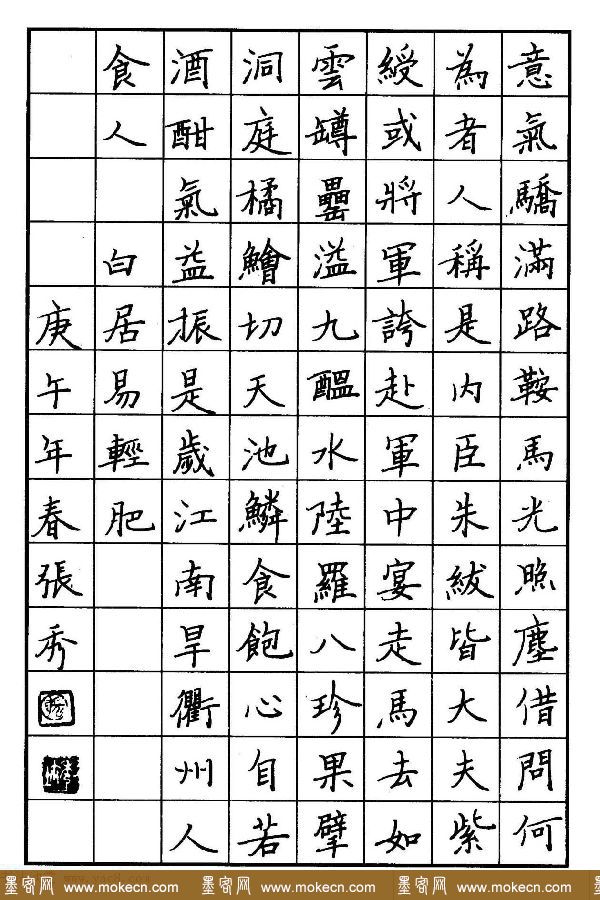 意氣驕滿路鞍馬光照塵借問何
為者人稱是內臣朱紱皆大夫紫
綬或將軍誇赴軍中宴走馬去如
雲罇罍溢九醞水陸羅八珍果擘
洞庭橘鱠切天池鱗食飽心自若
酒酣氣益振是歲江南旱衢州人
食人 白居易輕肥
庚午年春張秀
墨客网 www.mokecn.com 墨客网 www.mokecn.com 墨客网 www.mokecn.com